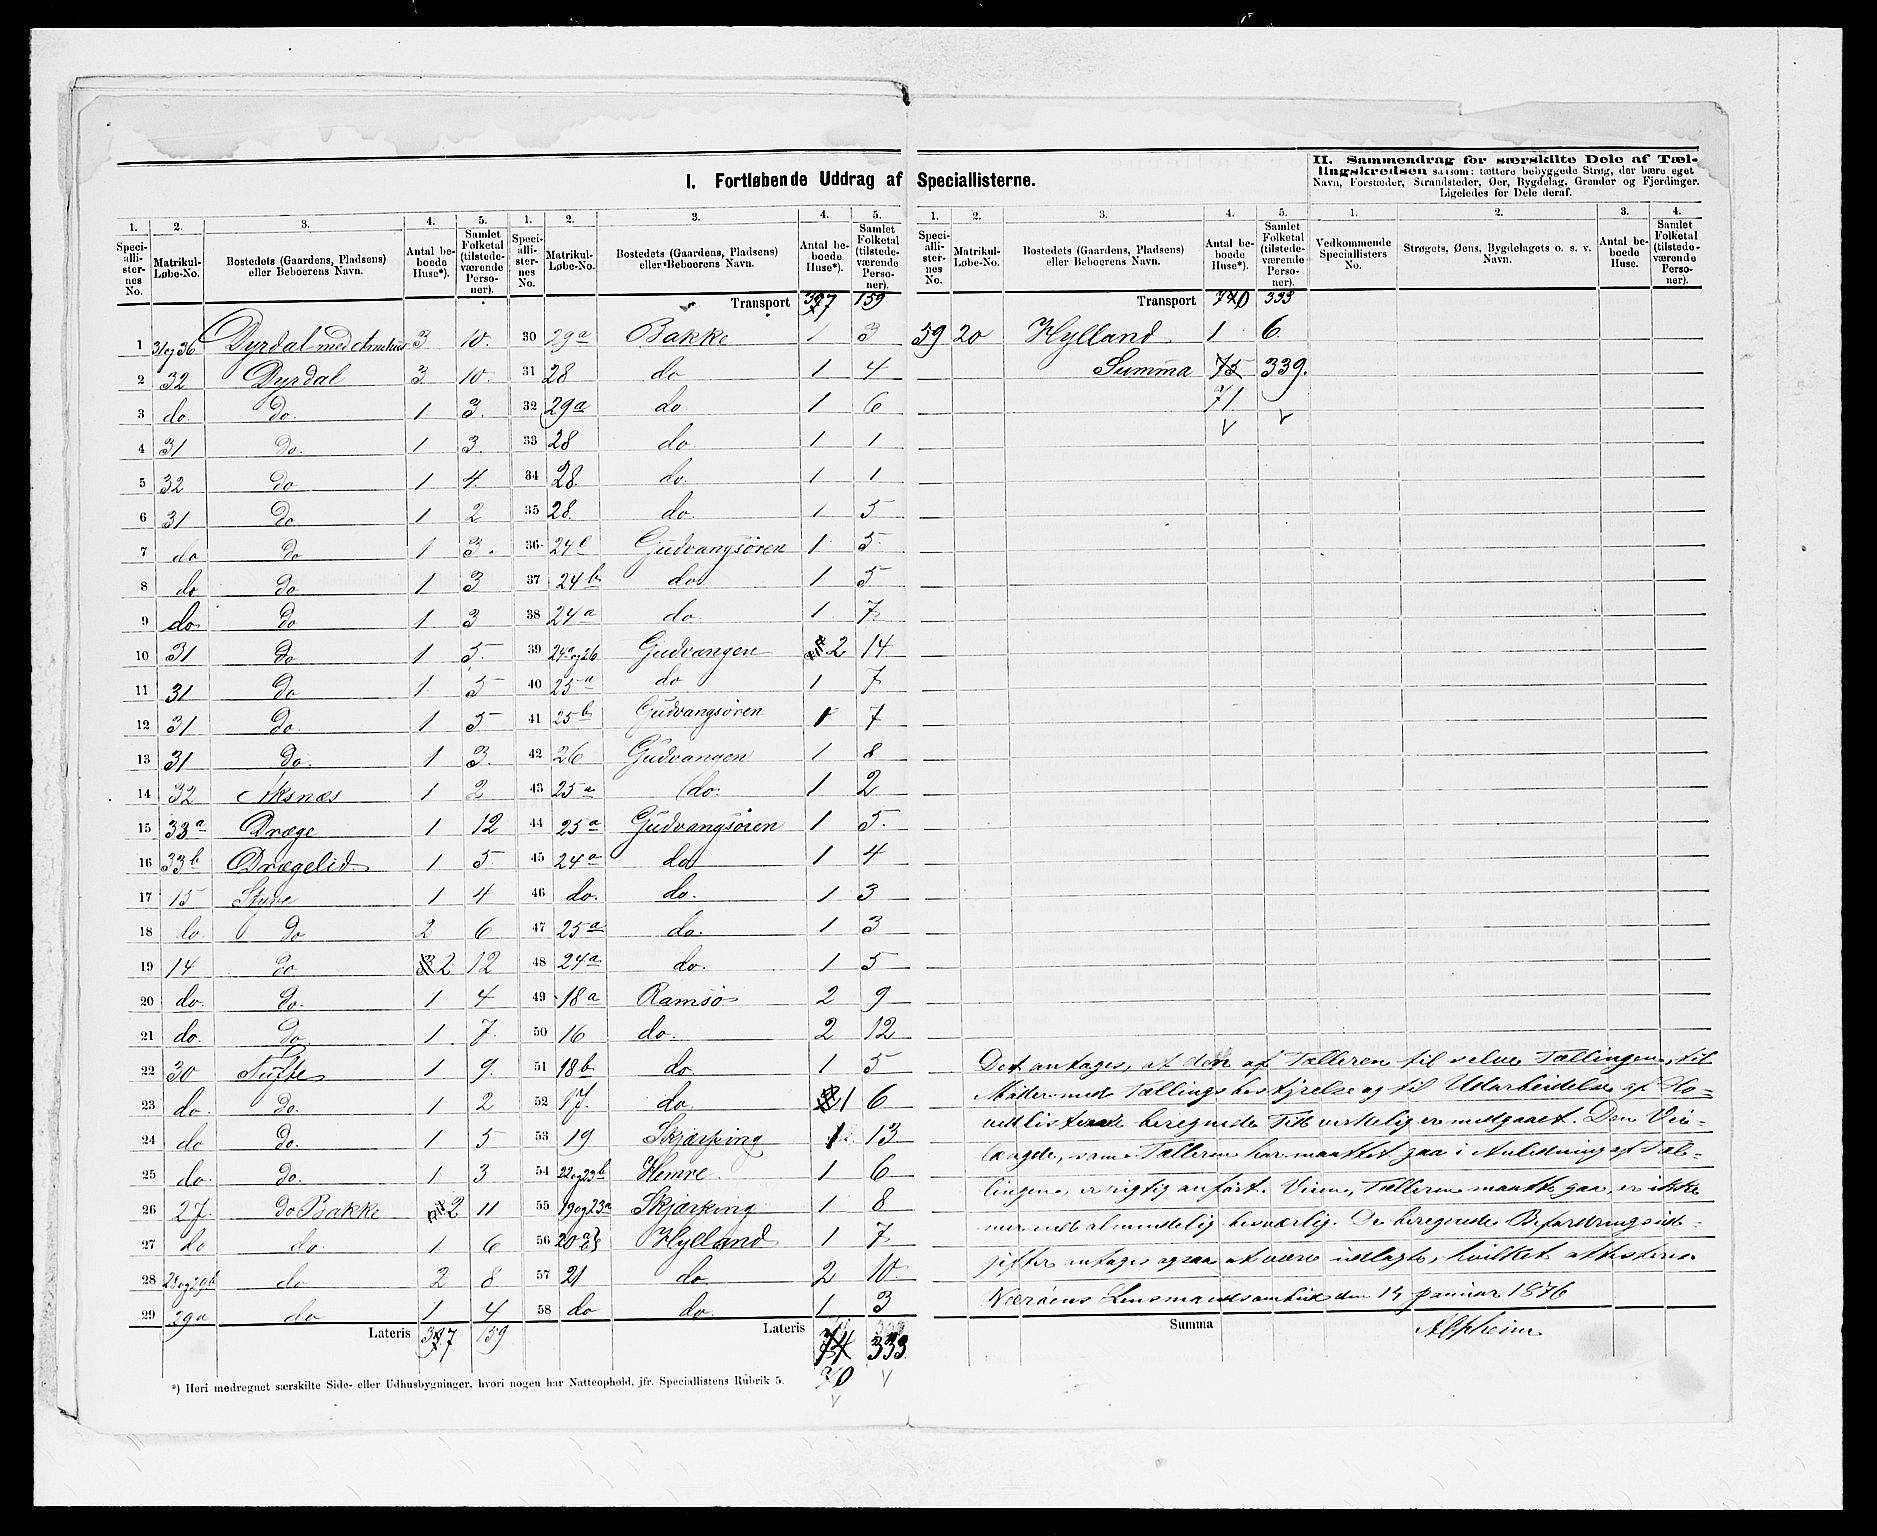 I. Fortløbende Uddrag af Speciallisterne.
II. Sammendrag for særskilte Dele af Tællingskredsen saasom: tættere bebyggede Strøg, der bære eget
Navn, Forstæder, Strandsteder, Øer, Bygdelag, Grender og Fjerdinger.
Ligeledes for Dele deraf.
1. 2. 3. 4. 5. 1. 2. 3. 4. 5. 1. 2. 3. 4. 5. 1. 2. 3. 4.
Speciallisternes No. Matrikul-Løbe-No. Bostedets (Gaardens, Pladsens) eller Beboerens Navn. Antal beboede Huse*). Samlet Folketal (tilstedeværende Personer).
Speciallisternes No. Matrikul-Løbe-No. Bostedets (Gaardens, Pladsens) eller Beboerens Navn. Antal beboede Huse*). Samlet Folketal (tilstedeværende Personer).
Speciallisternes No. Matrikul-Løbe-No. Bostedets (Gaardens, Pladsens) eller Beboerens Navn. Antal beboede Huse*). Samlet Folketal (tilstedeværende Personer).
Vedkommende Speciallisters No. Strøgets, Øens, Bygdelagets o. s. v. Navn. Antal beboede Huse. Samlet Folketal (tilstedeværende Personer).
1 31 og 36 Dyrdal med 3 10.
2 32 Dyrdal 3 10.
3 do. Do. 1 3.
4 31 Do. 1 3.
5 32 Do 1 4.
6 31 Do 1 2
7 do Do 1 3.
8 do Do 1 3
9 do Do 1 3
10 31 Do 1 5.
11 31 Do 1 5
12 31 Do. 1 5
13 31 Do. 1 3.
14 32 Aksnæs 1 2
15 33a Dræge 1 12
16 33b Drægelid. 1 5
17 15 Styve 1 4
18 do. Do 2 6
19 14 Do 2 12
20 do. Do. 1 4
21 do. Do. 1 7.
22 30 Tufte 1 9.
23 do. Do. 1 2
24 do Do. 1 5
25 do. Do. 1 3
26 27. Do Bakke 2 11
27 do do. 1 6
28 28 og 29b do 2 8
29 29a do 1 4
Lateris 37 159
Transport 37 159
30 29a Bakke 1 3
31 28 do 1 4
32 29a do. 1 6
33 28 do 1 1
34 28. do. 1 1
35 28. do. 1 5
36 24c Gudvangsøren 1 5.
37 24b do 1 5
38 24a do. 1 7
39 24a og 26 Gudvangen 2 14
40 25a do 1 7
41 25b Gudvangsøren 1 7
42 26 Gudvangen 1 8
43 25a do. 1 2
44 25a Gudvangsøren 1 5.
45 24a do 1 4
46 do. do. 1 3
47 25a do. 1 3
48 24a do. 1 5
49 18a Ramsø 2 9
50 16 do. 2 12
51 18b do 1 5
52 17. do 1 6
53 19 Skjærping 1 13
54 22 og 23b Hemre. 1 6
55 19 og 23a Skjærping 1 8
56 20 Hylland 1 7
57 21 do 2 10
58 do do. 1 3
Lateris 74 333
70
Transport 70 333
59 20 Hylland 1 6.
Summa 75 339.
71
Det antages, at den af Tælleren til selve Tællingen, til
Møder med Tællingsbestyrelse og til Udarbeidelse af Ho-
vedlisterne beregnede Tid virkelig er medgaaet. Den Vei-
længde, som Tælleren har maattet gaa i Anledning af Tæl-
lingen, er rigtig anført. Veien, Tælleren maatte gaa, er ikke
mer end almindelig besværlig. De beregnede Befordringsud-
gifter antages ogsaa at være udlagte, hvilket attesteres
Nærøens Lensmandsombud den 14 Januar 1876
Summa
*) Heri medregnet særskilte Side- eller Udhusbygninger, hvori nogen har Natteophold, jfr. Speciallistens Rubrik 5.